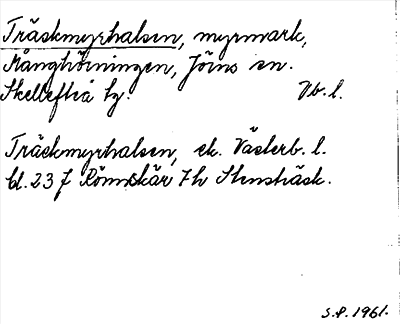 Träskmyrhalsen, myrmark,
Månghörningen, Jörns sn.
Skellefteå tg. Vb. l.
Träskmyrhalsen, ek. Västerb. l.
bl. 23 J Rönnskär 7h Stensträsk.
S.P. 1961.